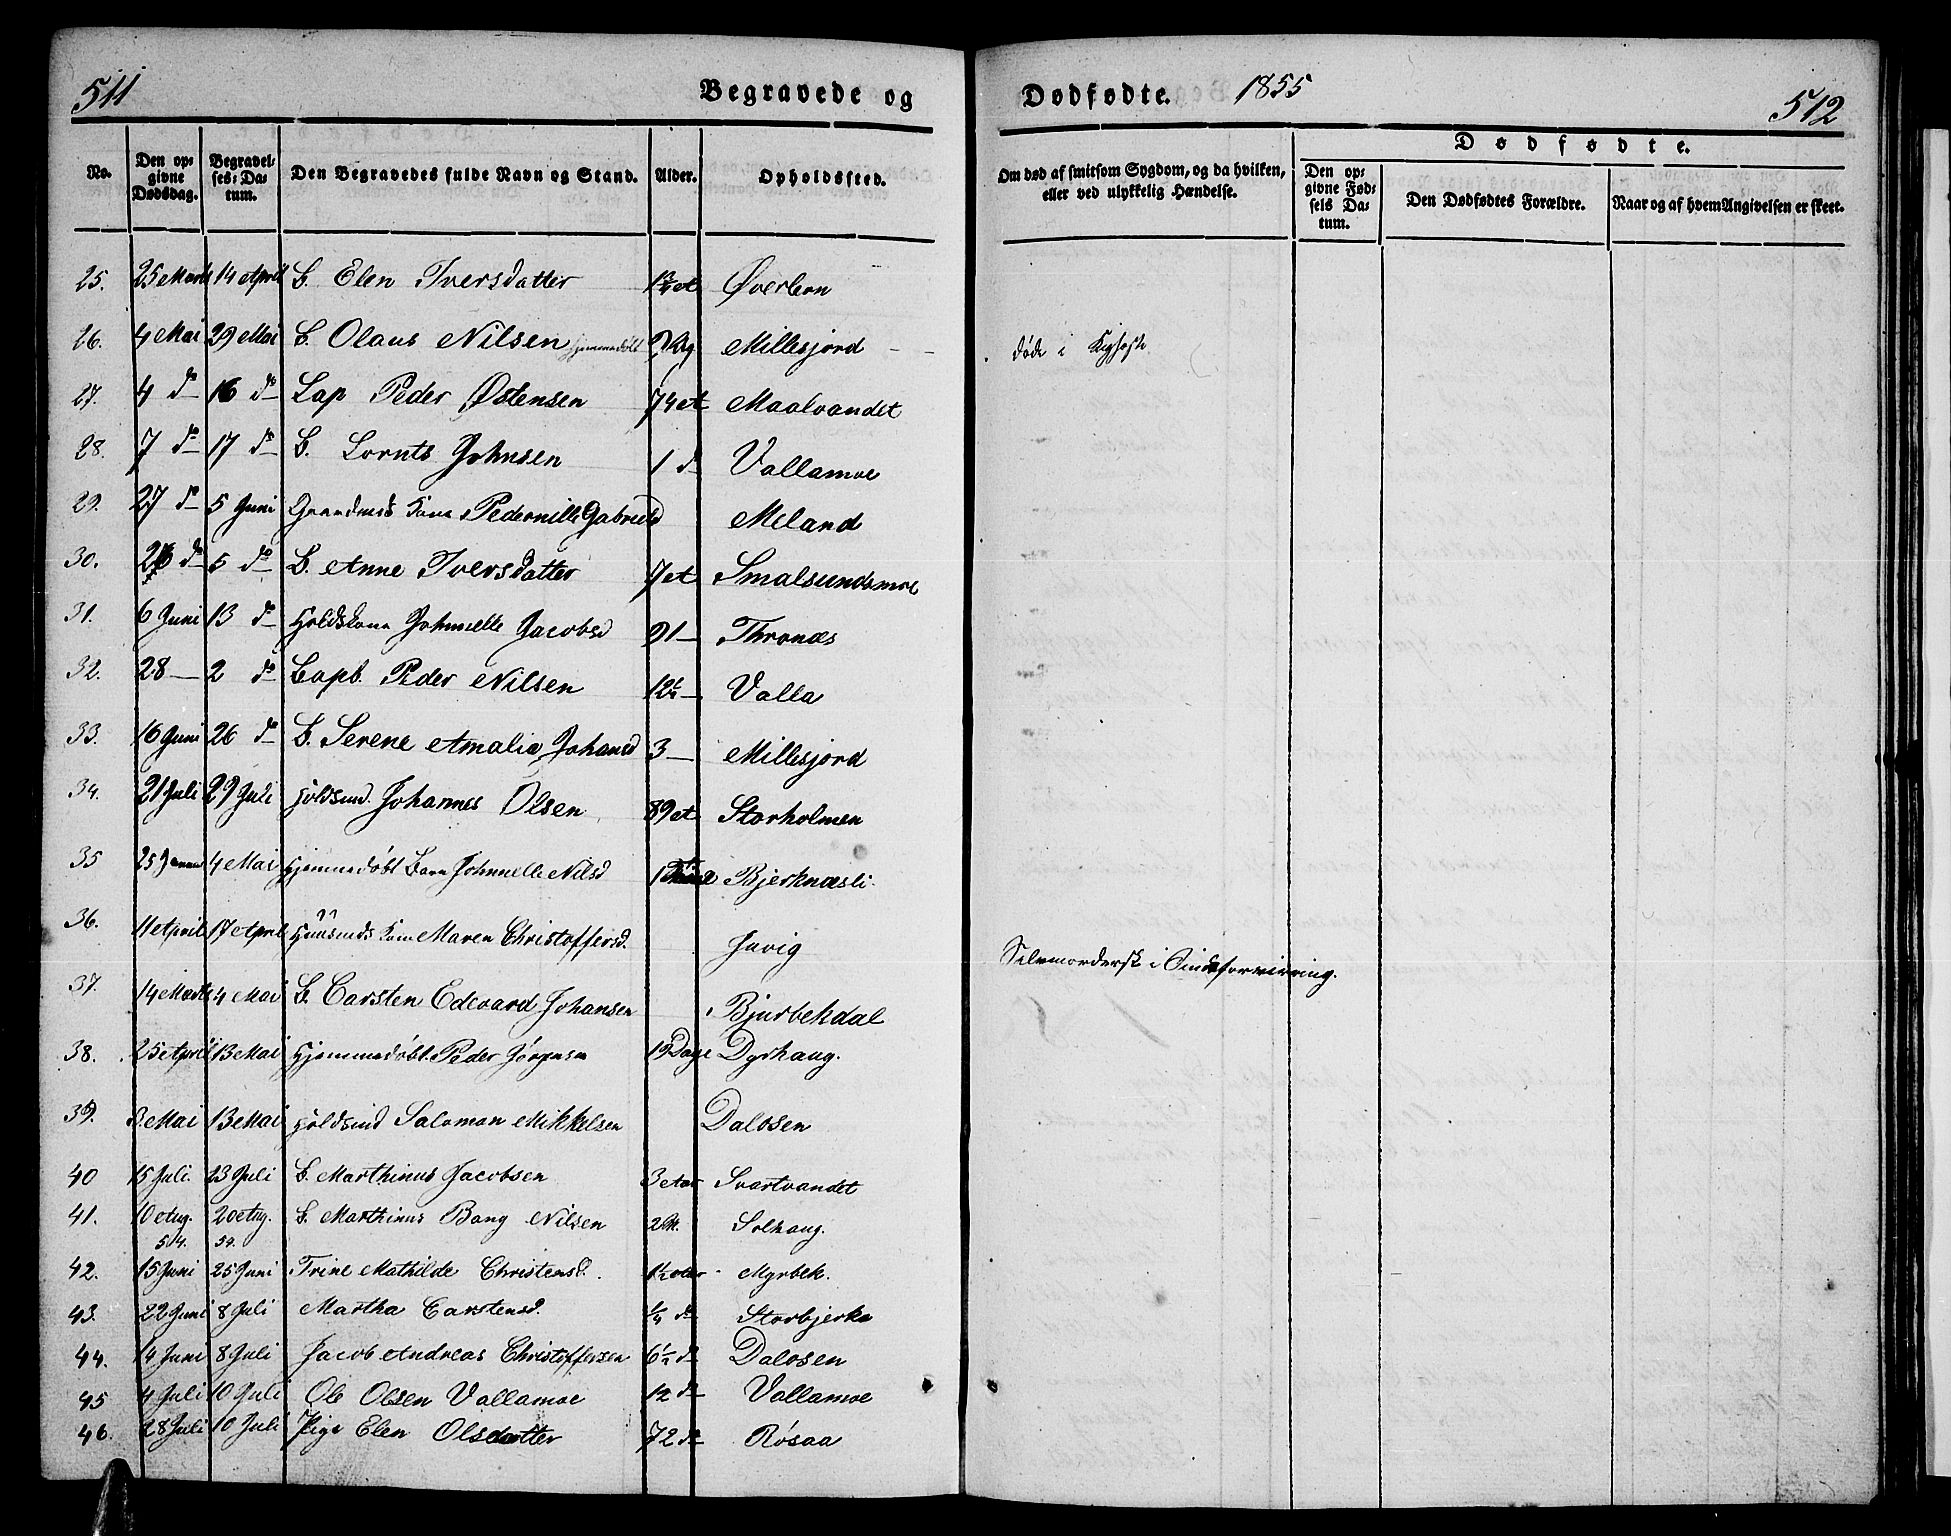 511
Begravede og
Dødfødte.
1855
512
No.
Den op-
givne
Dødsdag.
Begravel-
ses-Da-
tum.
Den Begravedes fulde Navn og Stand.
Alder.
Opholdssted.
Om død af smitsom Sygdom, og da hvilken,
eller ved ulykkelig Hændelse.
Dødfødte.
Den op-
givne Fød-
sels Da-
tum.
Den Dødfødtes Forældre.
Naar og af hvem Angivelsen er skeet.
25. 25 Marts 14 April B. Elen Iversdatter
26. 4 Mai 29 Mai B. Olaus Nilsen hjemmedøbt Millesjord døde i Kighoste
27. 4 do 16 do Lap Peder Østensen 74 et Maalvandet
28. 7 do 17 do B. Lornts Johnsen 1 do Vallamoe
29. 27 do 5 Juni Gaardmds Kone Pedernille Gabrielsd Meland
30. do 5 do B. Anne Iversdatter 7 et Smalsundsmoe
31. 6 Juni 13 do Holdskone Johnnelle Jacobsd 91 — Thronæs
32. 28 — 2 do Lapb. Peder Nilsen 12½ — Valla
33. 16 Juni 26 do B. Serene Amalia Johansd 3 — Millesjord
34. 21 Juli 29 Juli Holdsmd. Johannes Olsen 89 et Storholmen
35 25 4 Mai Hjemmedøbt Barn Johnnelle Nilsd Bjerknæsli.
36. 11 April 17 April Huusmds Kone Maren Christoffersd. Juvig Selvmordersk i Sindsforvirring.
37. 14 Marts 4 Mai B. Carsten Edevard Johansen Bjurbekdal
38. 25 April 13 Mai Hjemmedøbt Peder Jørgensen 19 Dage Dyrhaug.
39. 3 Mai 13 Mai Holdsmd Salomon Mikkelsen Dalosen
40 15 Juli. 23 Juli B. Marthinus Jacobsen 3 Aar Svartvandet
41. 10 Aug. 54. 20 Aug. 54. B. Marthinus Bang Nilsen 2 M. Solhaug.
42. 15 Juni 25 Juni Trine Mathilde Christensd. 1½ Aar Myrbek.
43. 22 Juni 8 Juli Martha Carstensd. ¼ do Storbjerka
44. 14 Juni 8 Juli Jacob Andreas Christoffersen 6½ do Dalosen
45 4 Juli 10 Juli Ole Olsen Vallamoe 12 do Vallamoe
46. 28 Juli 10 Juli Pige Elen Olsdatter 72 do Røsaa